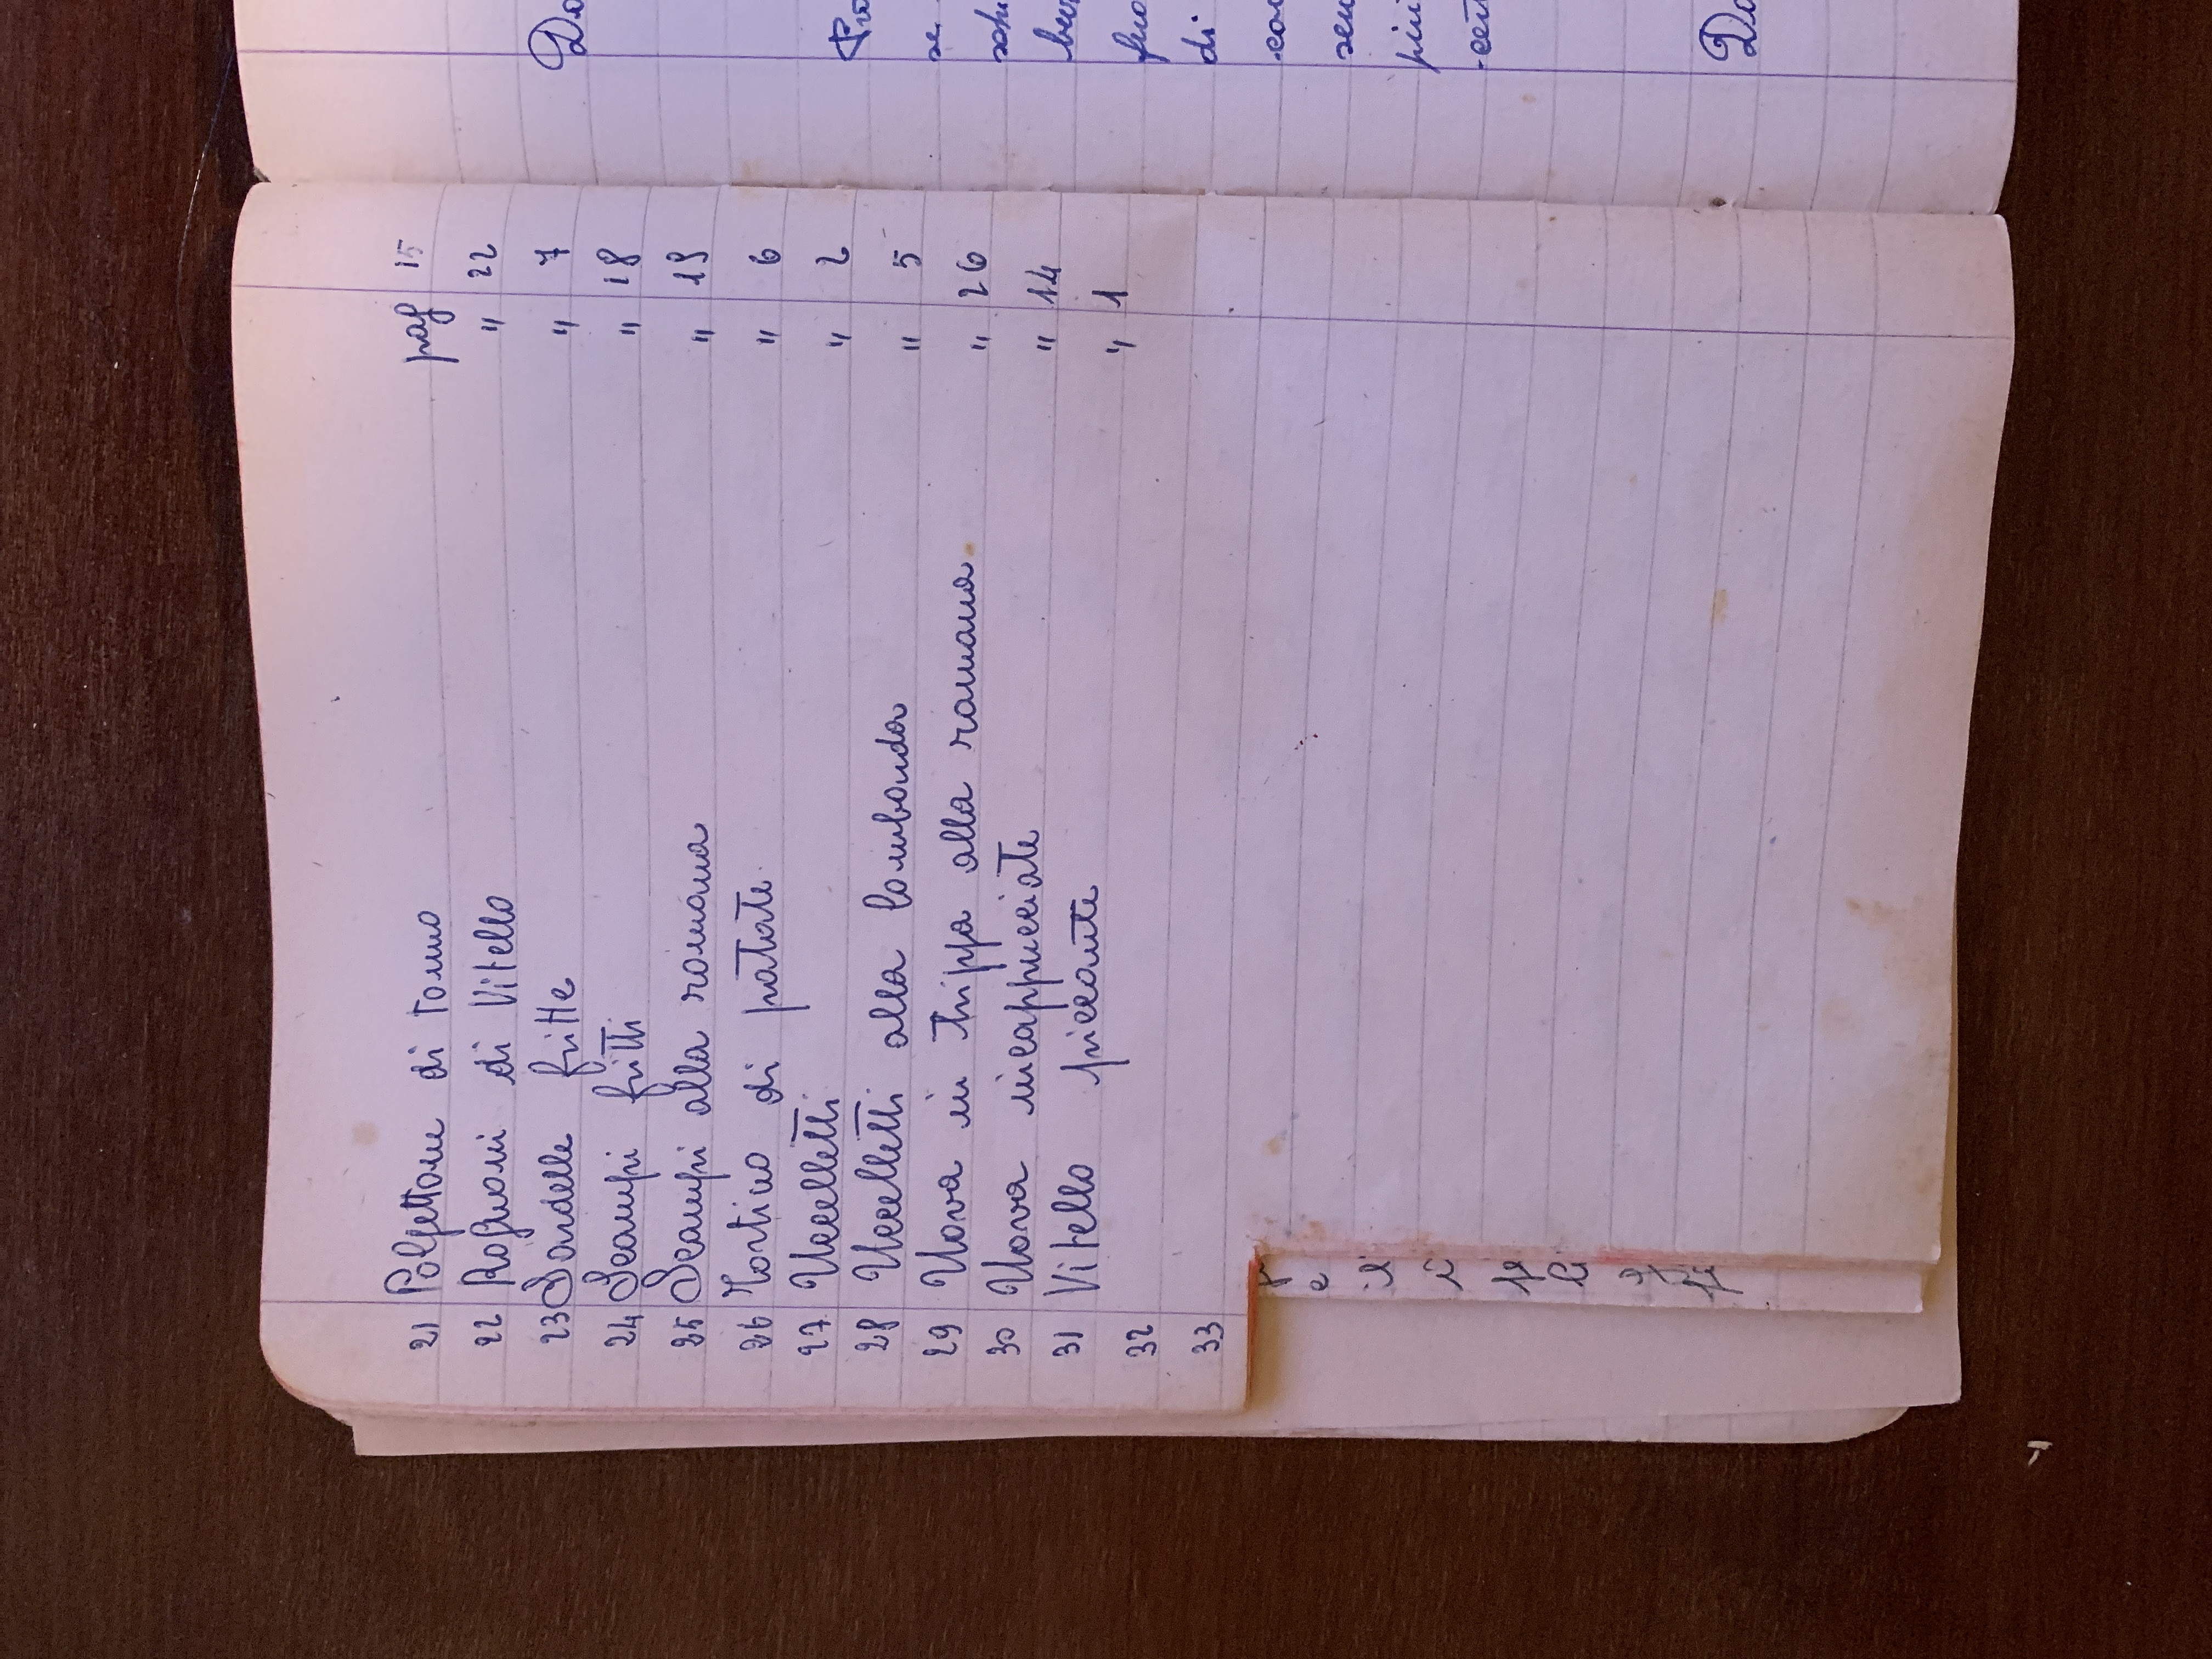 21 Polpettone di tonno pag 15
22 Rognoni di Vitello " 22
23 Sardelle fritte " 7
24 Scampi fritti " 18
25 Scampi alla romana " 19
26 Tortino di patate " 6
27 Uccelletti " 2
28 Uccelletti alla lombarda " 5
29 Uova in trippa alla romana " 26
30 Uova incappucciate " 14
31 Vitello piccante " 1
32
33